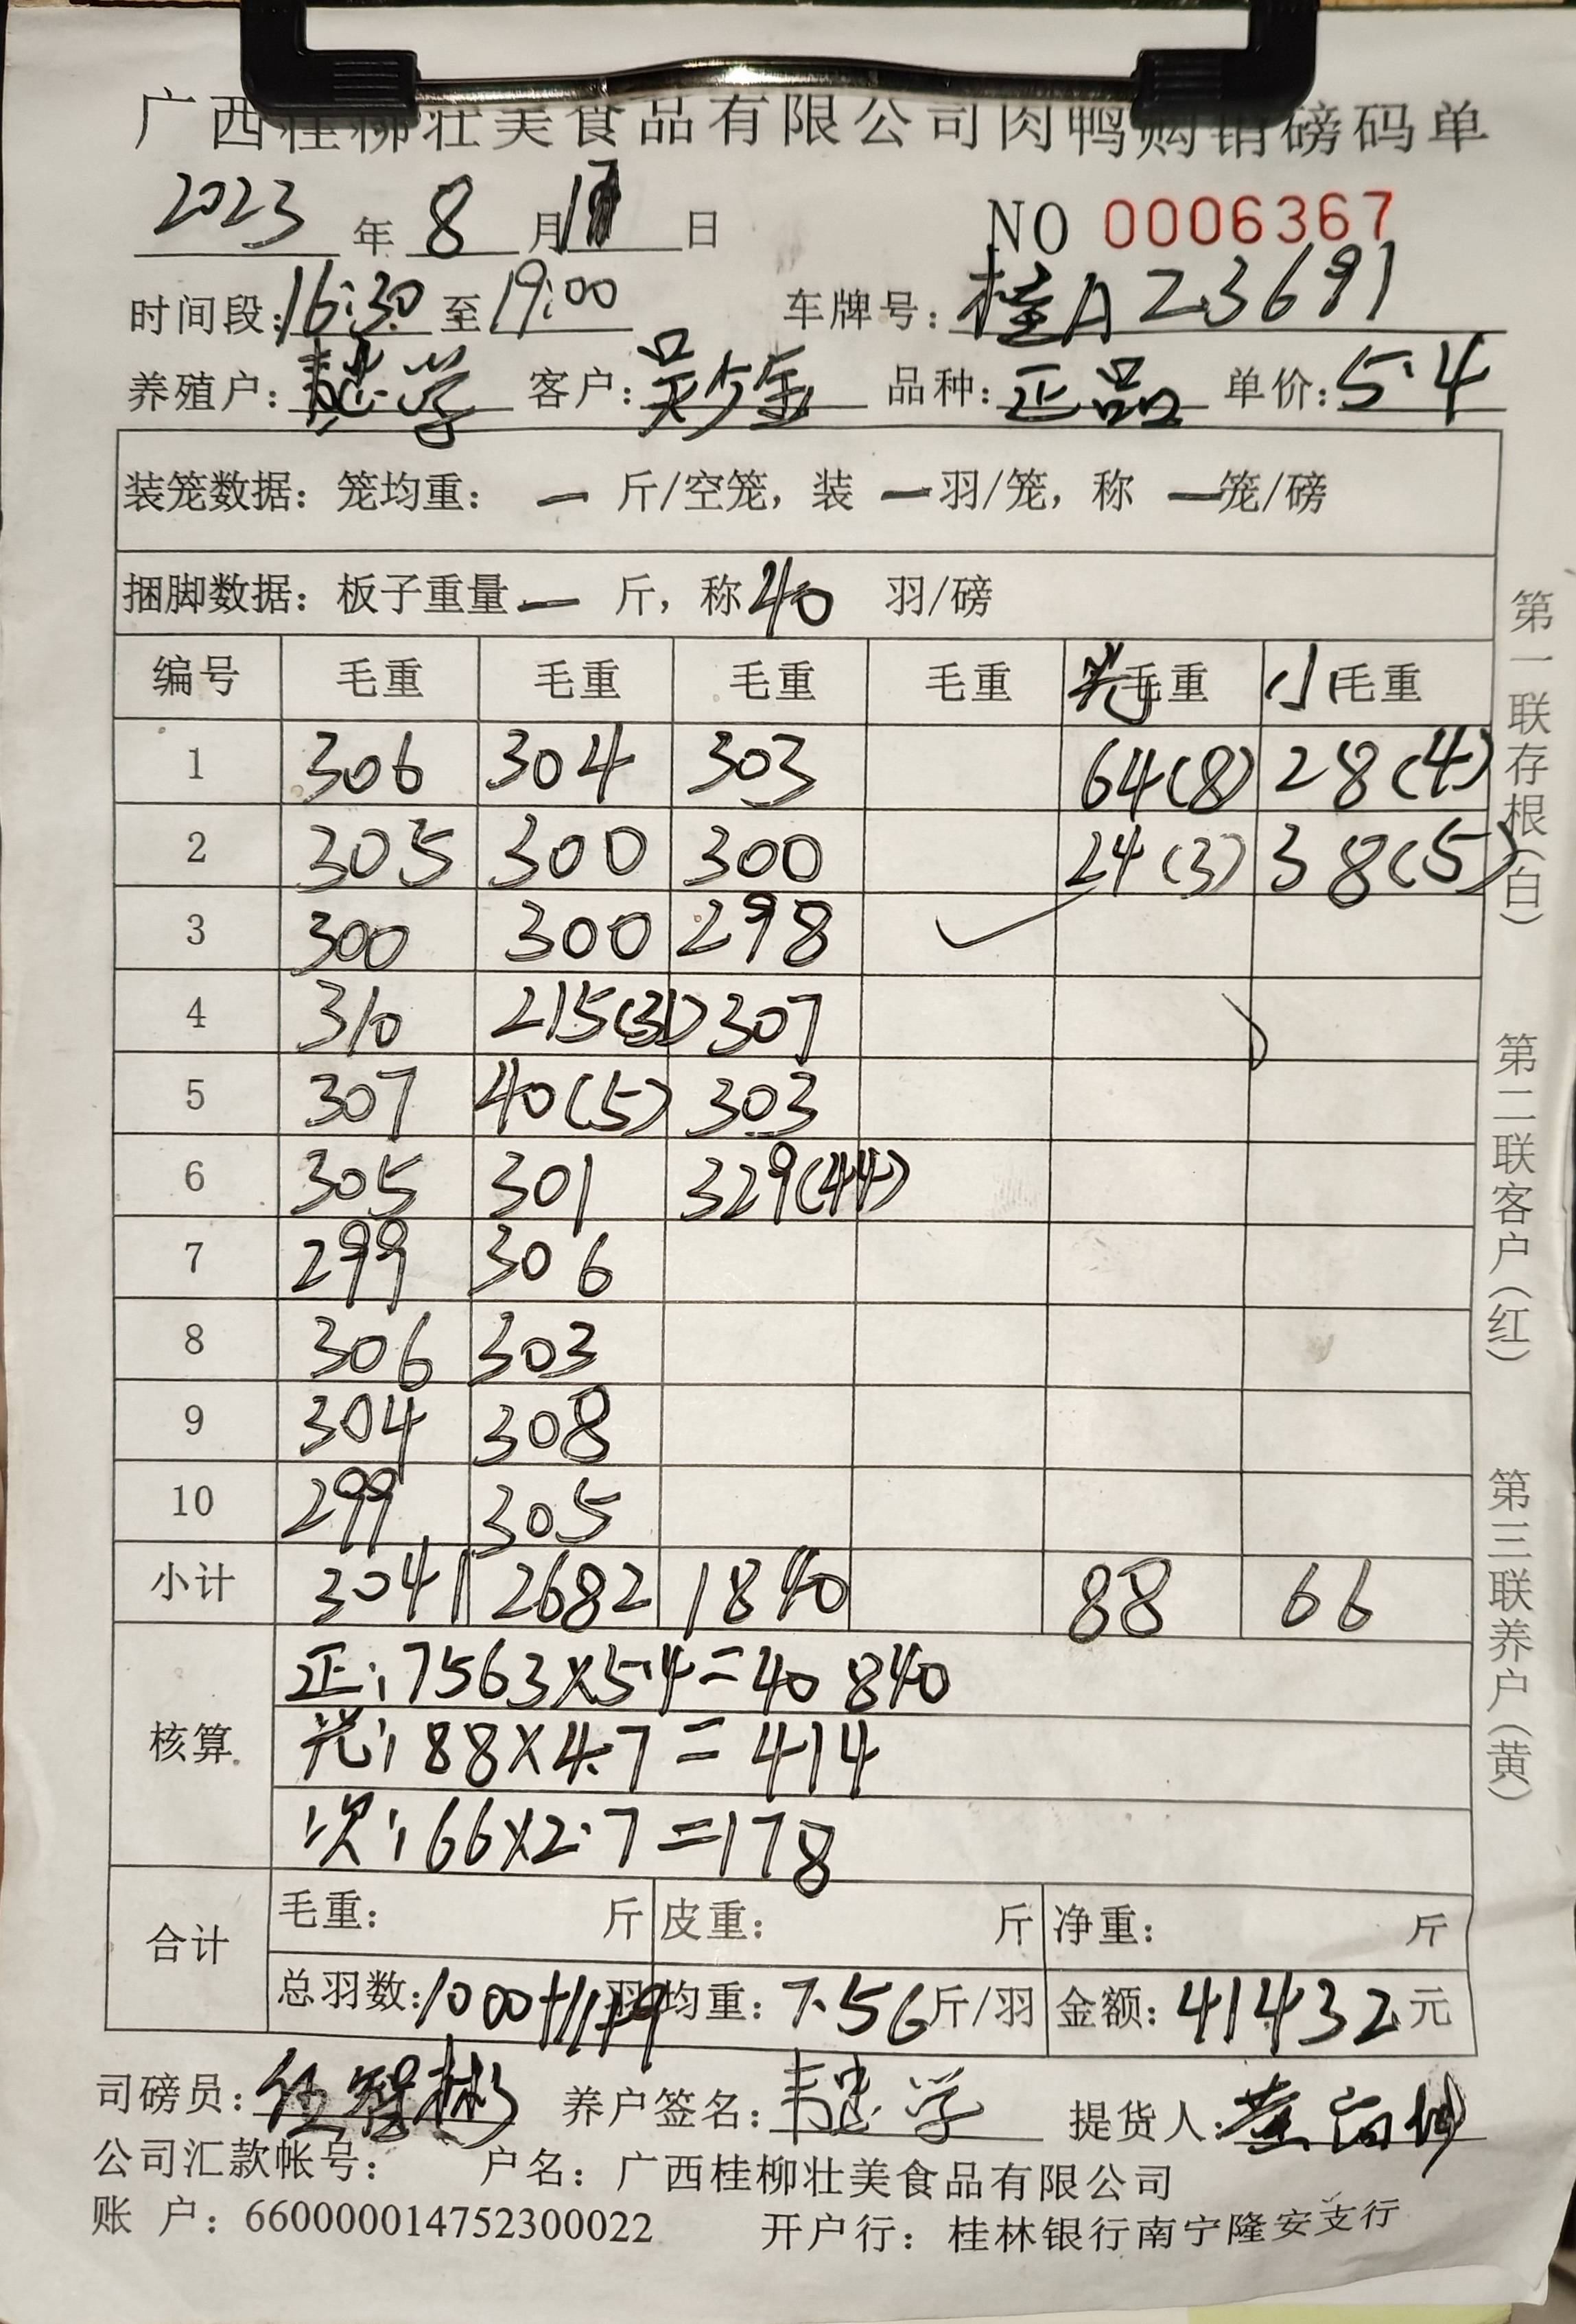 广西桂柳壮美食品有限公司肉鸭购销磅码单
2023 年 8 月 日 NO 0006367
时间段:16:30 至 19:00 车牌号:桂A Z3691
养殖户: 客户: 品种:正品 单价:5.4
装笼数据: 笼均重: — 斤/空笼, 装 — 羽/笼, 称 — 笼/磅
捆脚数据: 板子重量 — 斤, 称 40 羽/磅
编号 毛重 毛重 毛重 毛重 毛重 小毛重
1 306 304 303 64(8) 28(4)
2 305 300 300 24(3) 38(5)
3 300 300 298
4 310 215(31) 307
5 307 40(5) 303
6 305 301 329(44)
7 299 306
8 306 303
9 304 308
10 299 305
小计 3041 2682 1840 88 66
核算
正:7563×5.4=40840
光:88×4.7=414
次:66×2.7=178
合计
毛重: 斤 皮重: 斤 净重: 斤
总羽数: 羽 均重:7.56斤/羽 金额:41432元
司磅员: 养户签名: 提货人:
公司汇款帐号: 户名: 广西桂柳壮美食品有限公司
账 户: 660000014752300022 开户行: 桂林银行南宁隆安支行
第一联存根(白) 第二联客户(红) 第三联养户(黄)